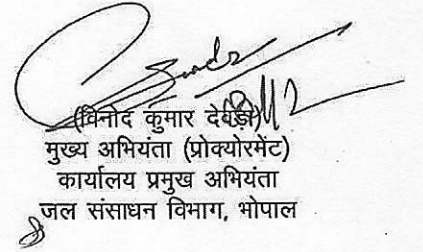 (विनोद कुमार देवड़ा)
मुख्य अभियंता (प्रोक्योरमेंट)
कार्यालय प्रमुख अभियंता
जल संसाधन विभाग, भोपाल